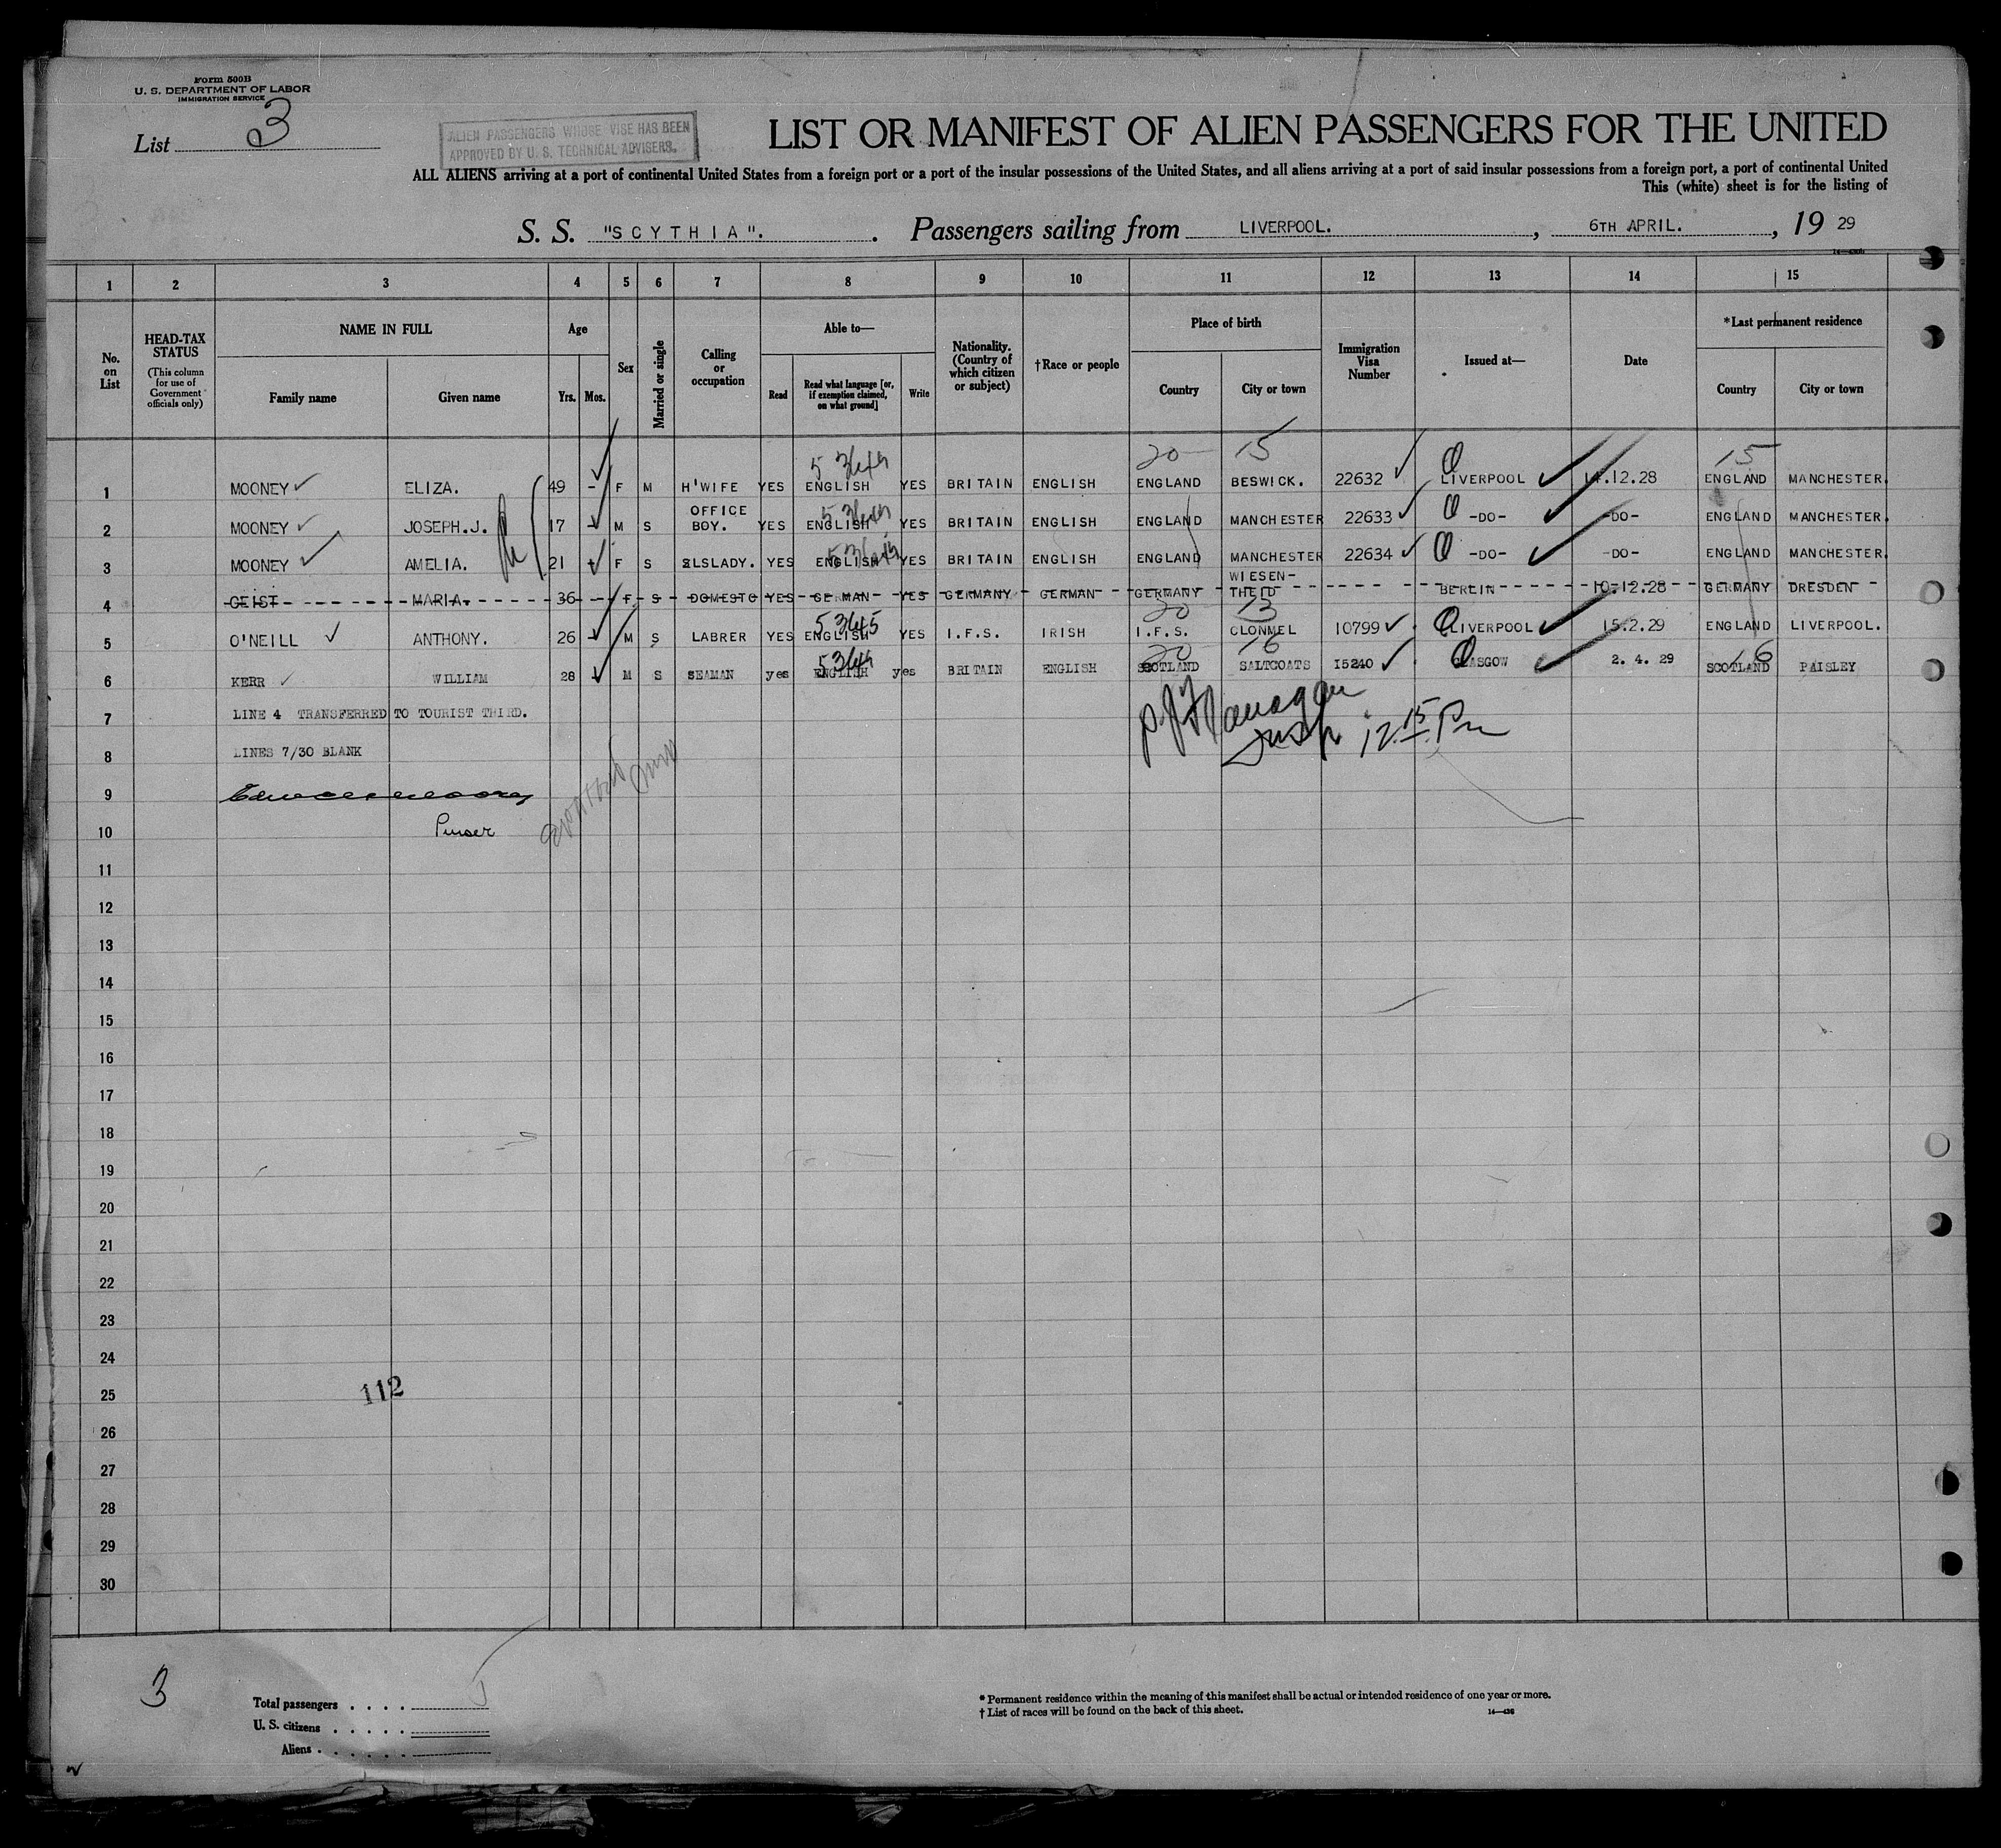 Form 500B
U. S. DEPARTMENT OF LABOR
IMMIGRATION SERVICE
List 3
ALIEN PASSENGERS WHOSE VISE HAS BEEN
APPROVED BY U. S. TECHNICAL ADVISERS.
LIST OR MANIFEST OF ALIEN PASSENGERS FOR THE UNITED
ALL ALIENS arriving at a port of continental United States from a foreign port or a port of the insular possessions of the United States, and all aliens arriving at a port of said insular possessions from a foreign port, a port of continental United
This (white) sheet is for the listing of
S. S. "SCYTHIA". Passengers sailing from LIVERPOOL. , 6TH APRIL. , 19 29
1 2 3 4 5 6 7 8 9 10 11 12 13 14 15
No. on List
HEAD-TAX STATUS (This column for use of Government officials only)
NAME IN FULL
Family name Given name
Age
Yrs. Mos.
Sex
Married or single
Calling or occupation
Able to—
Read
Read what language [or, if exemption claimed, on what ground]
Write
Nationality. (Country of which citizen or subject)
†Race or people
Place of birth
Country City or town
Immigration Visa Number
Issued at—
Date
*Last permanent residence
Country City or town
20 15 15
1 MOONEY ELIZA. 49 - F M H'WIFE YES ENGLISH YES BRITAIN ENGLISH ENGLAND BESWICK. 22632 LIVERPOOL .12.28 ENGLAND MANCHESTER.
2 MOONEY JOSEPH.J. 17 - M S OFFICE BOY. YES ENGLISH YES BRITAIN ENGLISH ENGLAND MANCHESTER 22633 -DO- -DO- ENGLAND MANCHESTER.
3 MOONEY AMELIA. 21 F S SLSLADY. YES ENGLISH YES BRITAIN ENGLISH ENGLAND MANCHESTER 22634 -DO- -DO- ENGLAND MANCHESTER.
4 GEIST MARIA. 36 - F S DOMESTC YES GERMAN YES GERMANY GERMAN GERMANY WIESEN-THEID BERLIN 10.12.28 GERMANY DRESDEN
20 13
5 O'NEILL ANTHONY. 26 - M S LABRER YES ENGLISH YES I.F.S. IRISH I.F.S. CLONMEL 10799 LIVERPOOL 15.2.29 ENGLAND LIVERPOOL.
20 16 16
6 KERR WILLIAM 28 M S SEAMAN yes ENGLISH yes BRITAIN ENGLISH SCOTLAND SALTCOATS 15240 GLASGOW 2. 4. 29 SCOTLAND PAISLEY
7 LINE 4 TRANSFERRED TO TOURIST THIRD.
8 LINES 7/30 BLANK
12.15 Pm
9
10 Purser
11
12
13
14
15
16
17
18
19
20
21
22
23
24
25 112
26
27
28
29
30
3
Total passengers . . . .
U. S. citizens . . . . .
Aliens . . . . . .
* Permanent residence within the meaning of this manifest shall be actual or intended residence of one year or more.
† List of races will be found on the back of this sheet.